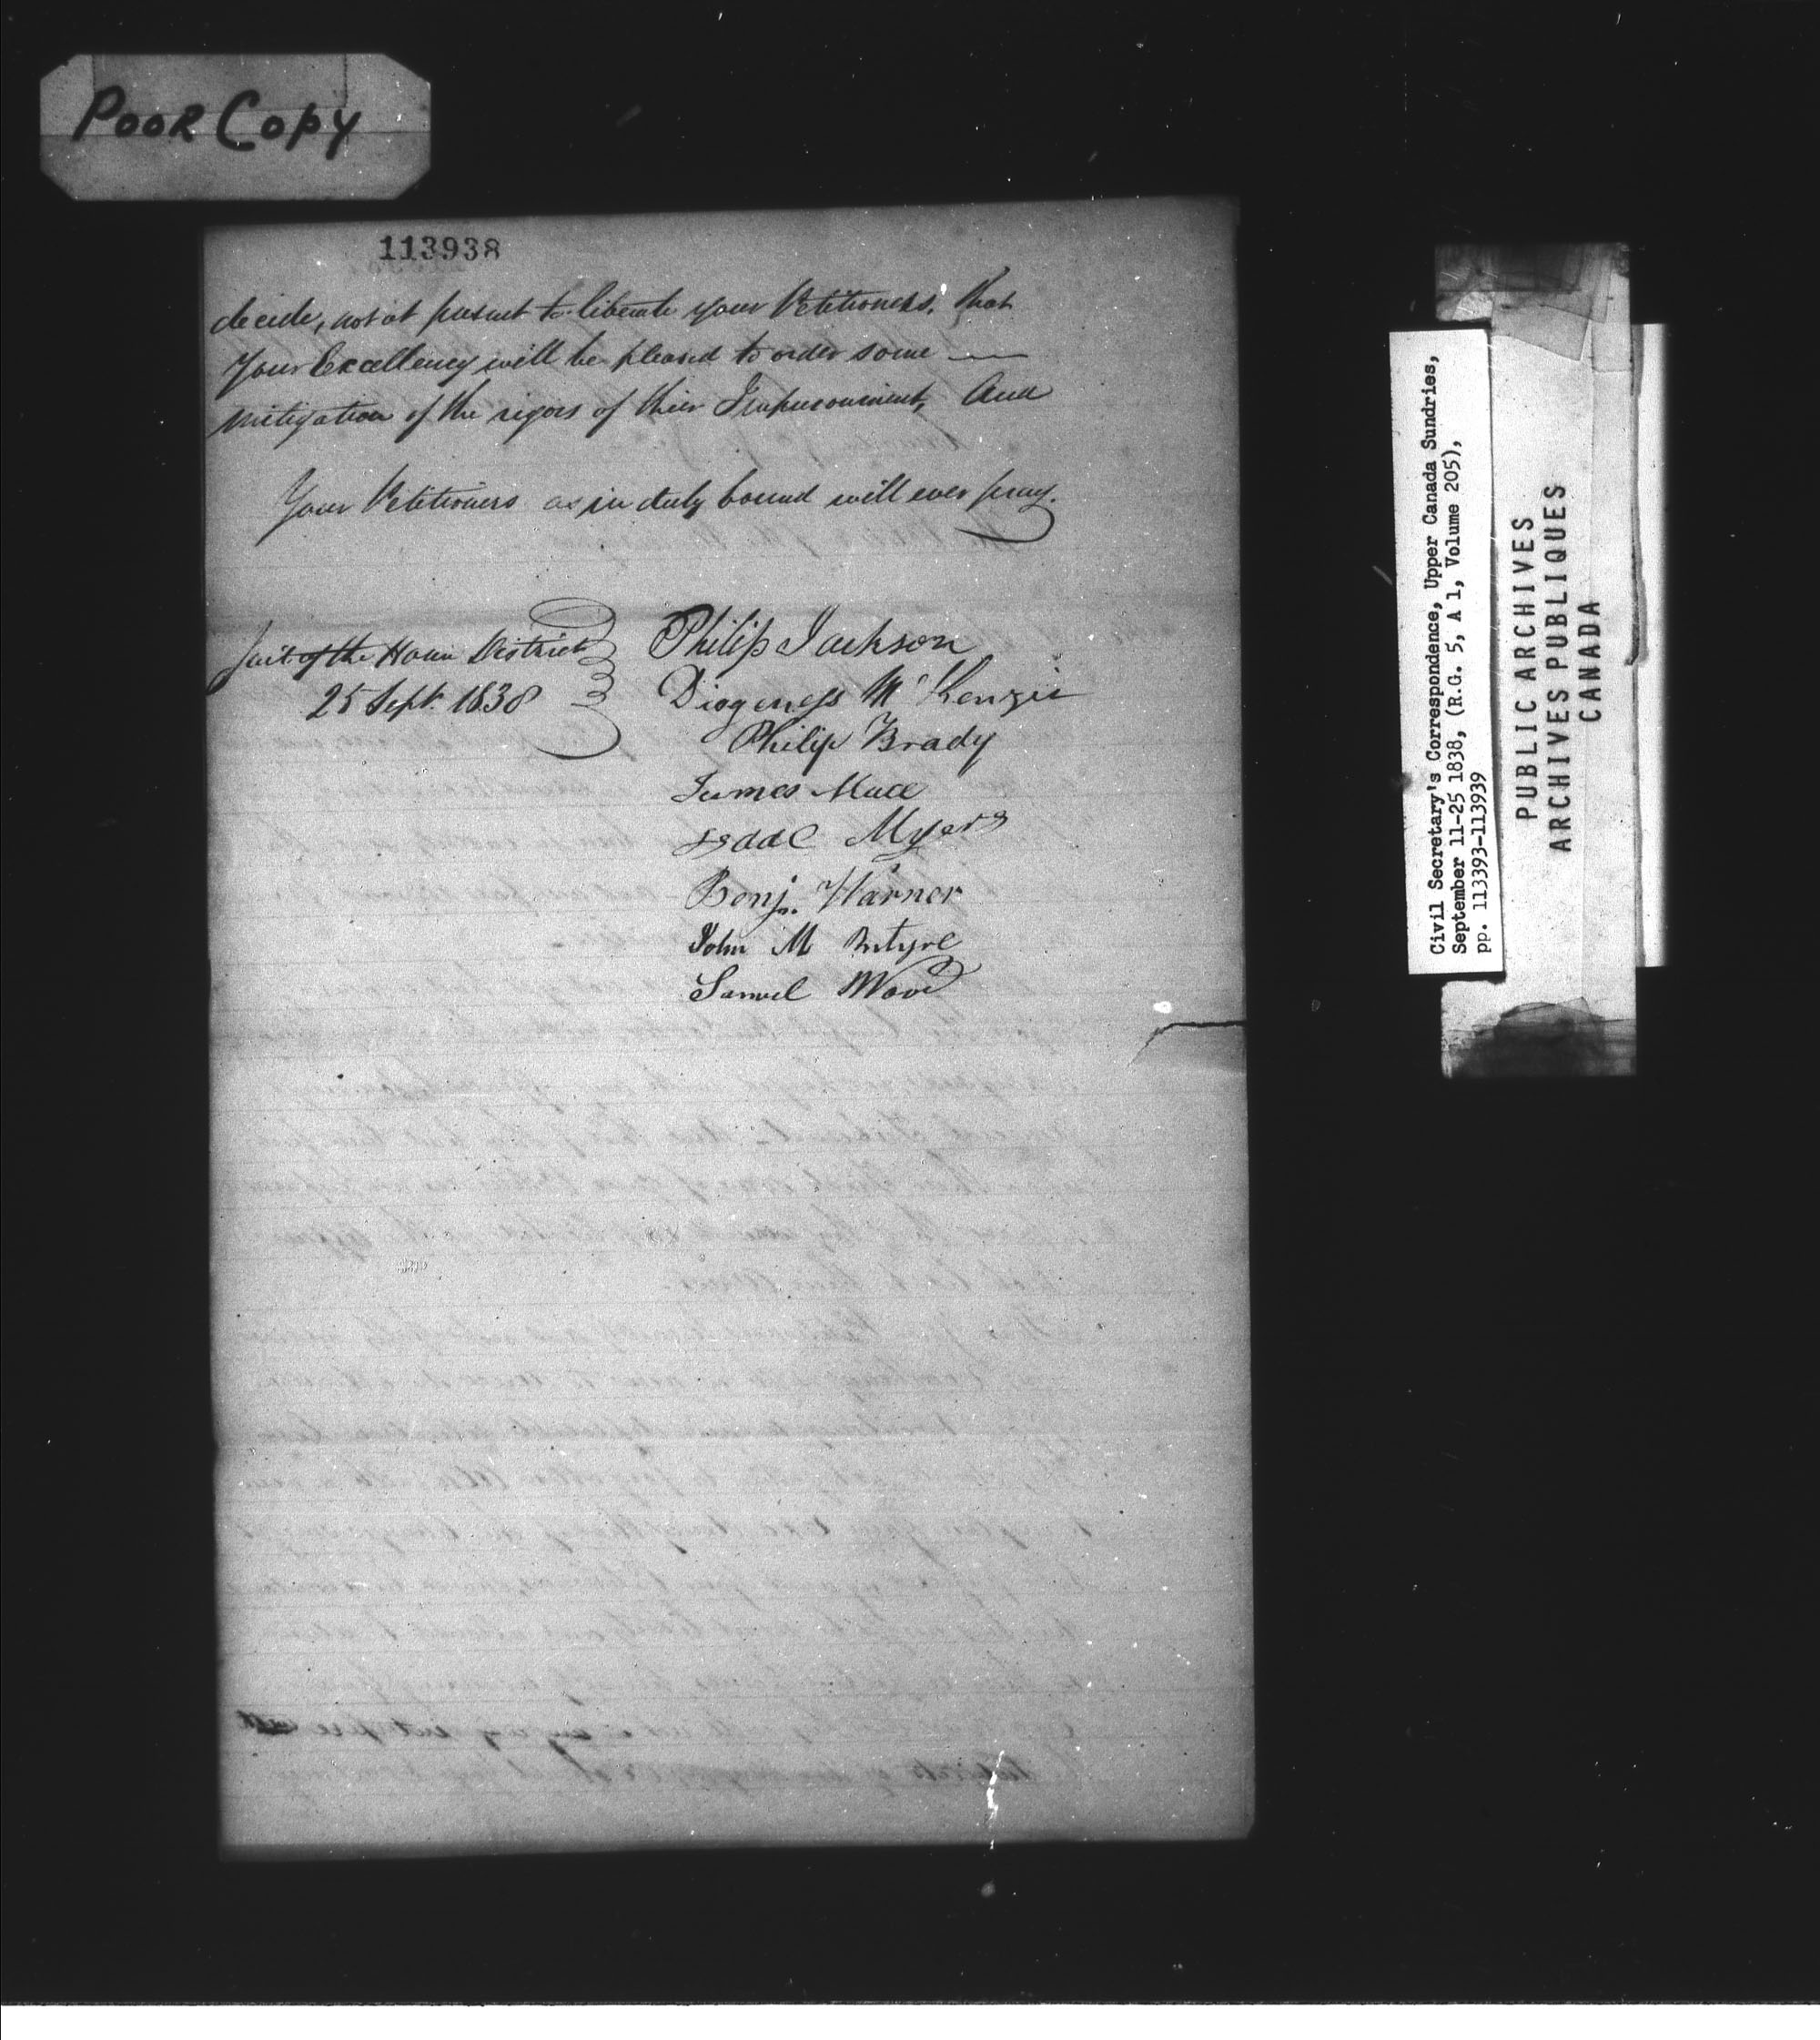 Poor Copy
113938
decide, not at present to liberate your Petitioners, that
Your Excellency will be pleased to order some —
mitigation of the rigors of their Imprisonment, And
Your Petitioners as in duty bound will ever pray.
Jail of the Home District
25 Sept. 1838
Philip Jackson
Diogeness McKenzie
Philip Brady
James Mace
Isaac Myers
Benj. Warner
John M Intyre
Samuel Wood
Civil Secretary's Correspondence, Upper Canada Sundries,
September 11-25 1838, (R.G. 5, A 1, Volume 205),
pp. 113393-113939
PUBLIC ARCHIVES
ARCHIVES PUBLIQUES
CANADA